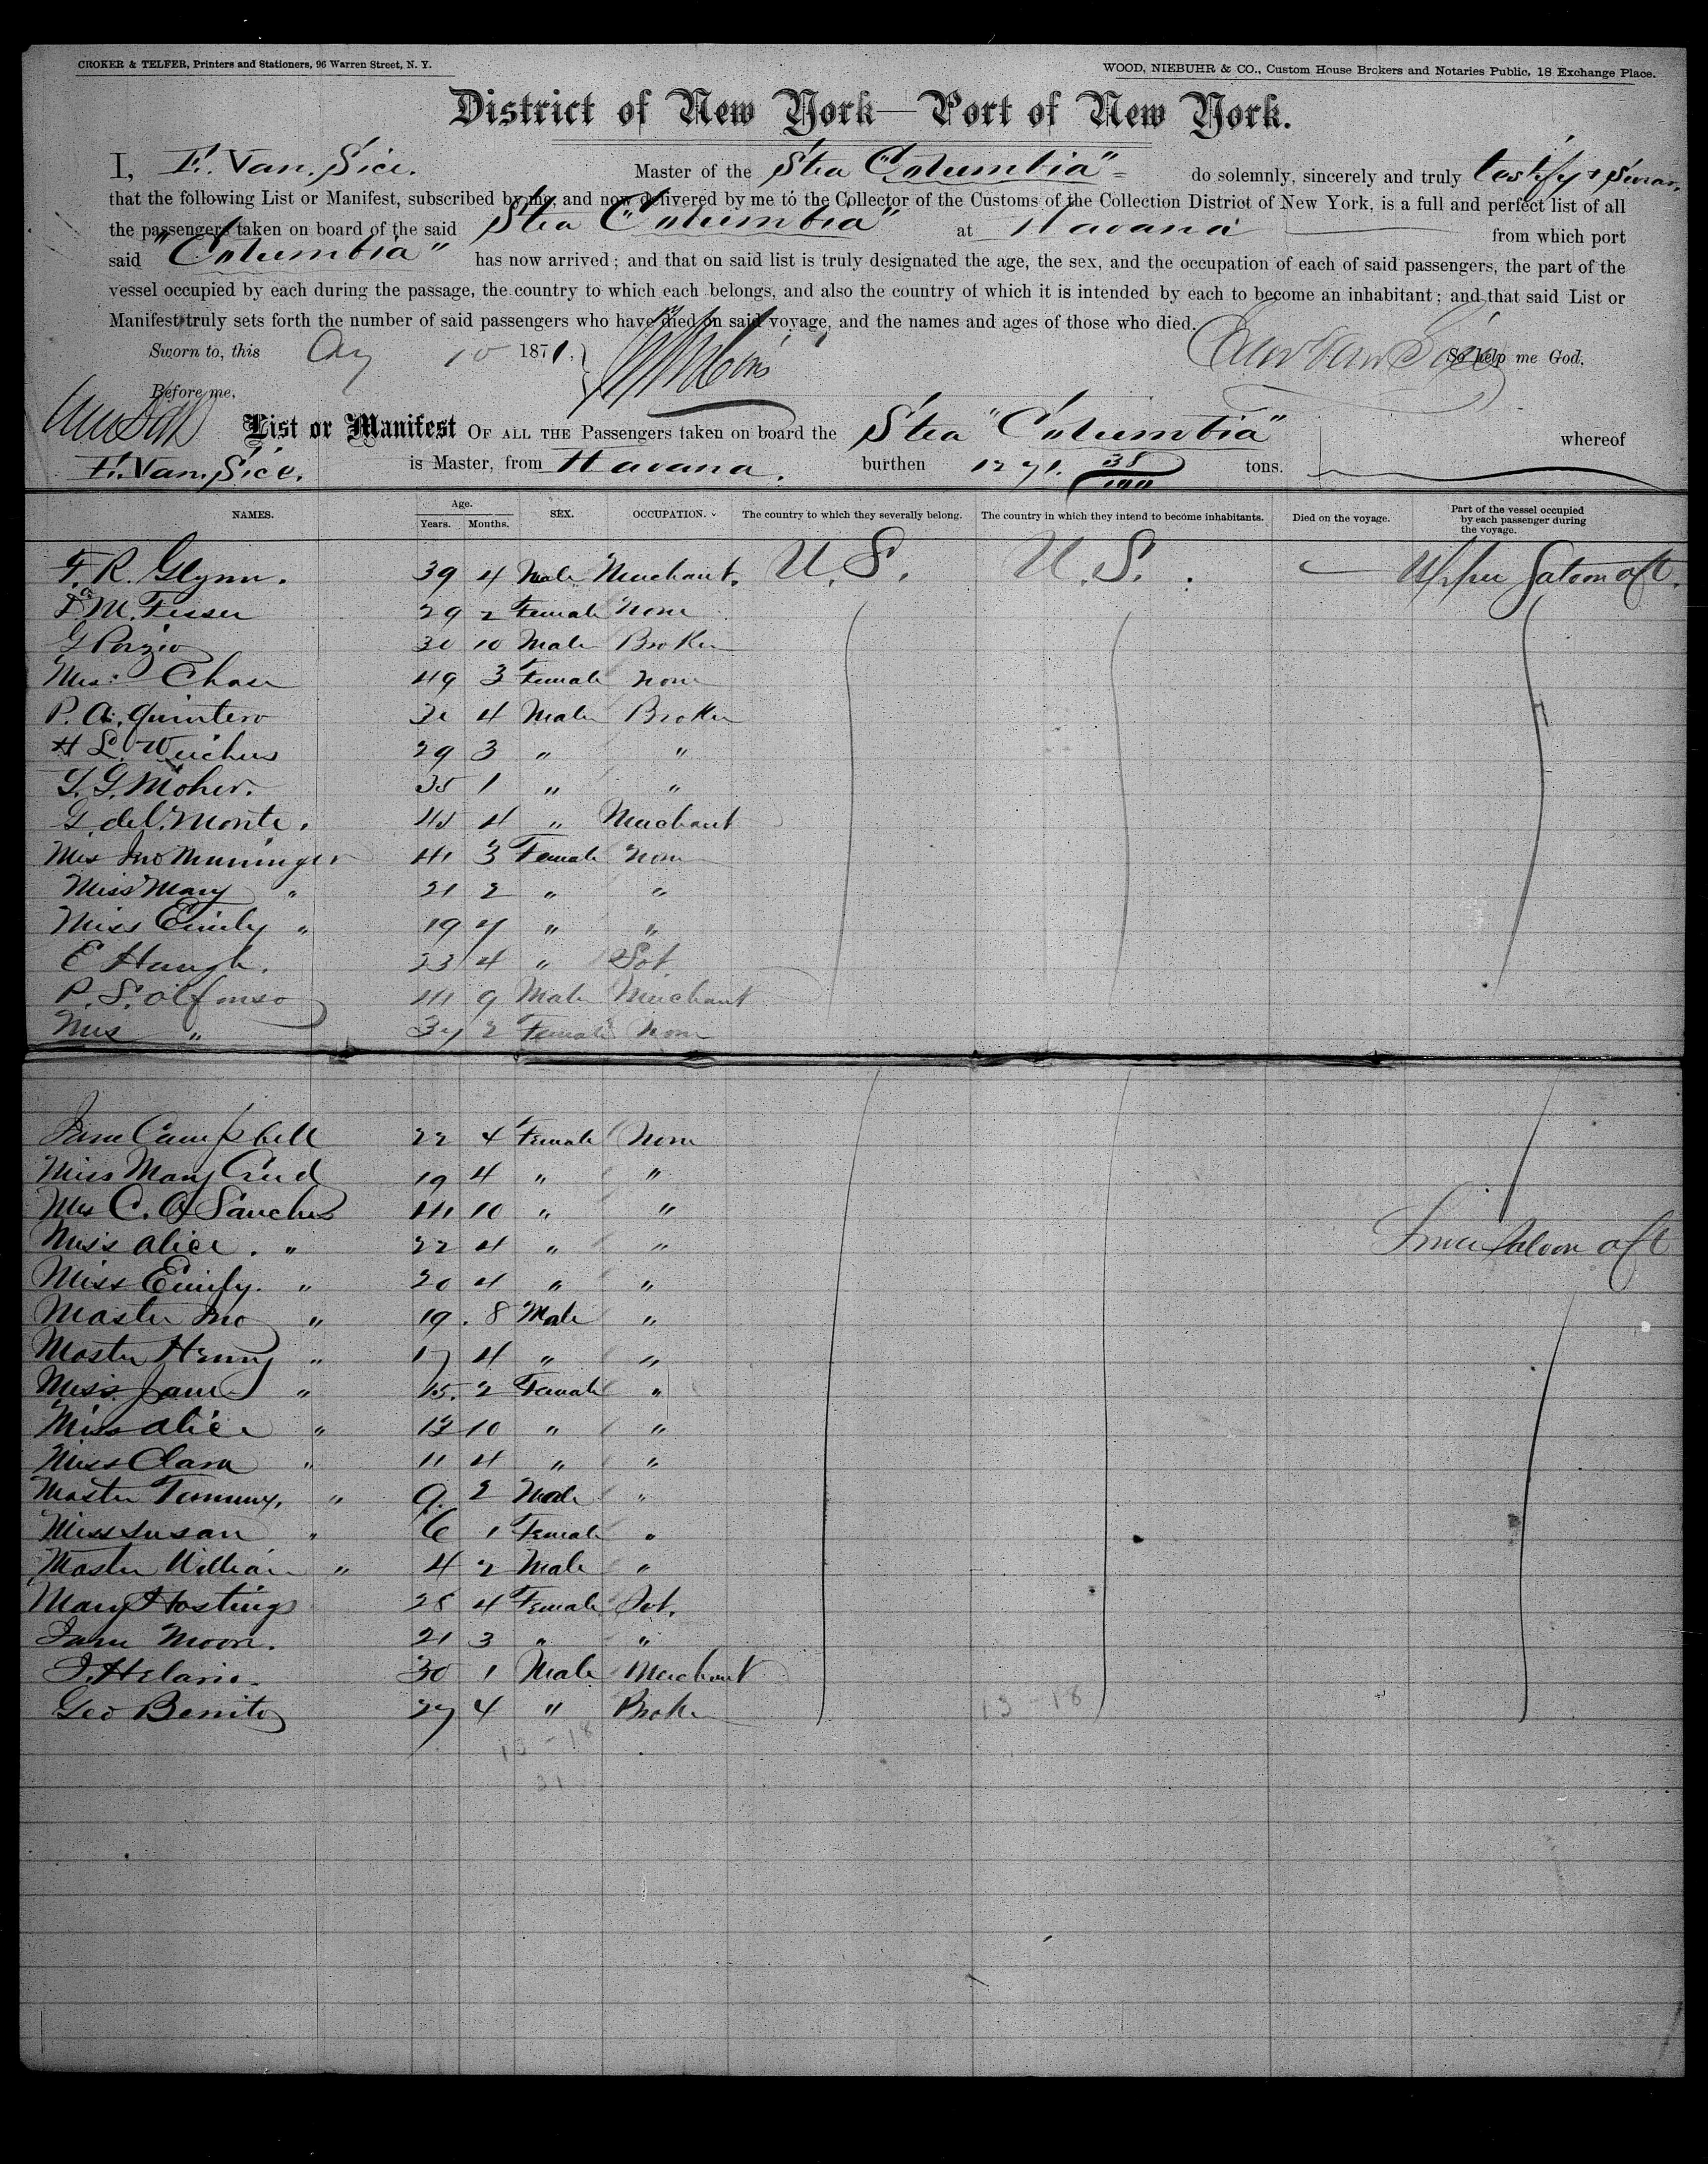 CROKER & TELFER, Printers and Stationers, 96 Warren Street, N. Y. WOOD, NIEBUHR & CO., Custom House Brokers and Notaries Public, 18 Exchange Place.
District of New York—Port of New York.
I, E. Van. Sice. Master of the Stea "Columbia" do solemnly, sincerely and truly
that the following List or Manifest, subscribed by me, and now delivered by me to the Collector of the Customs of the Collection District of New York, is a full and perfect list of all
the passengers taken on board of the said Stea "Columbia" at Havana from which port
said "Columbia" has now arrived; and that on said list is truly designated the age, the sex, and the occupation of each of said passengers, the part of the
vessel occupied by each during the passage, the country to which each belongs, and also the country of which it is intended by each to become an inhabitant; and that said List or
Manifest truly sets forth the number of said passengers who have died on said voyage, and the names and ages of those who died.
Sworn to, this Aug 10 1871, So help me God.
Before me,
List or Manifest OF ALL THE Passengers taken on board the Stea "Columbia" whereof
E. Van. Sice. is Master, from Havana. burthen 1271. 38/100 tons.
NAMES. Age. Years. Months. SEX. OCCUPATION. The country to which they severally belong. The country in which they intend to become inhabitants. Died on the voyage. Part of the vessel occupied by each passenger during the voyage.
F. R. Glynn. 39 4 Male Merchant. U. S. U. S. Upper Saloon aft.
M. Fesser 29 2 Female None
G Porzio 30 10 Male Broker
Mrs. Chase 49 3 Female None
P. A. Quintero 4 Male Broker
H L. 29 3 " "
Moher. 35 1 " "
G. del. Monte. 45 4 " Merchant
Mrs Jno Munninger 41 3 Female None
Miss Mary " 21 2 " "
Miss Emily " 19 " "
E Haugh. 23 4 " Svt.
P. S. Alfonso 41 9 Male Merchant
Mrs " 37 2 Female None
Jane Campbell 22 4 Female None
Miss Mary 19 4 " "
Mrs C. A Sanches 41 10 " "
Miss Alice. " 22 4 " "
Miss Emily. " 20 4 " "
Master Jno " 19. 8 Male "
Master Henry " 17 4 " "
Miss. Jane " 15. 2 Female "
Miss Alice " 13 10 " "
Miss Clara " 11 4 " "
Master Tommy, " 9. 2 Male "
Miss Susan " 6 1 Female "
Master William " 4 2 Male "
Mary Hastings 28 4 Female Svt.
Jane Moon. 21 3 " "
J. Hilario. 30 1 Male Merchant
Geo Benito 27 4 " Broker
Lower Saloon aft
13 - 18
13 - 18
31